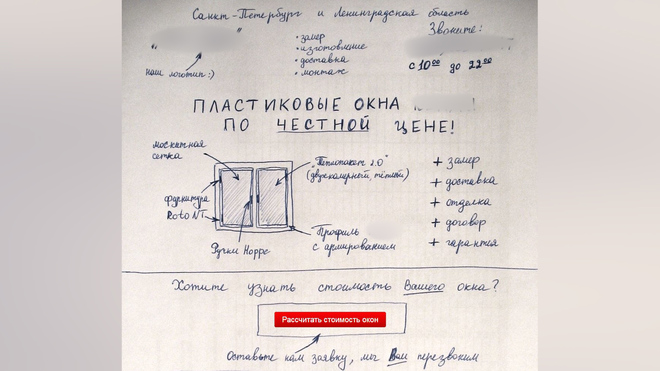 Санкт-Петербург и Ленинградская область
" "
наш логотип :)
• замер
• изготовление
• доставка
• монтаж
Звоните:
с 10⁰⁰ до 22⁰⁰
ПЛАСТИКОВЫЕ ОКНА
ПО ЧЕСТНОЙ ЦЕНЕ!
москитная
сетка
фурнитура
Roto NT
Ручки Hoppe
"Теплопакет 2.0"
(двухкамерный, тёплый)
Профиль
с армированием
+ замер
+ доставка
+ отделка
+ договор
+ гарантия
Хотите узнать стоимость Вашего окна?
Рассчитать стоимость окон
Оставьте нам заявку, мы Вам перезвоним